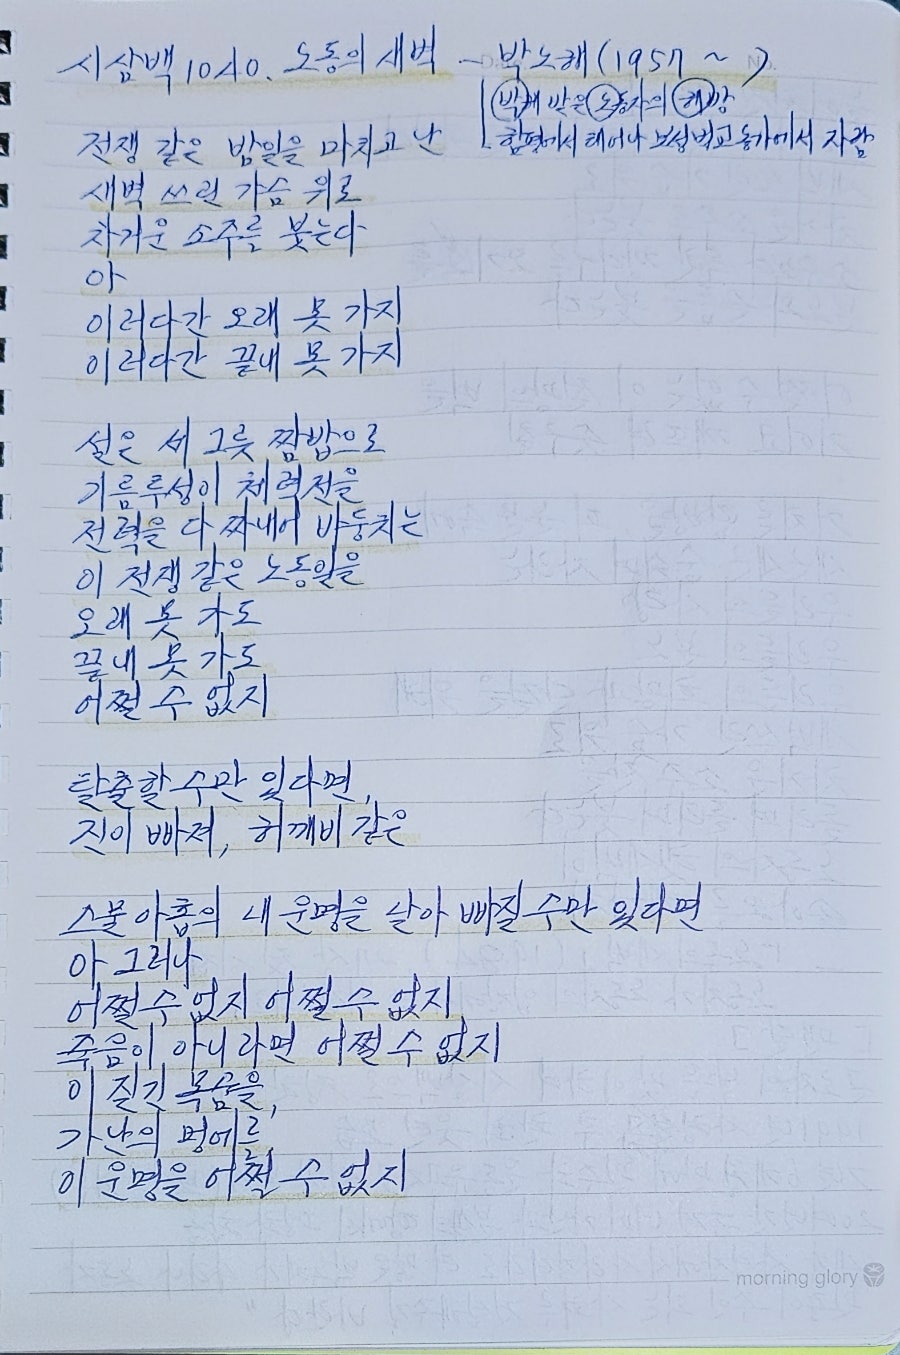 시삼백 1010. 노동의 새벽 - 박노해 (1957 ~ )
박해 받은 노동자의 해방
함평에서 태어나 보성 벌교 농가에서 자람
전쟁 같은 밤일을 마치고 난
새벽 쓰린 가슴 위로
차거운 소주를 붓는다
아
이러다간 오래 못 가지
이러다간 끝내 못 가지
설은 세 그릇 짬밥으로
기름투성이 체력전을
전력을 다 짜내어 바둥치는
이 전쟁 같은 노동일을
오래 못 가도
끝내 못 가도
어쩔 수 없지
탈출할 수만 있다면,
진이 빠져, 허깨비 같은
스물아홉의 내 운명을 날아 빠질 수만 있다면
아 그러나
어쩔 수 없지 어쩔 수 없지
죽음이 아니라면 어쩔 수 없지
이 질긴 목숨을,
가난의 멍에를
이 운명을 어쩔 수 없지
morning glory